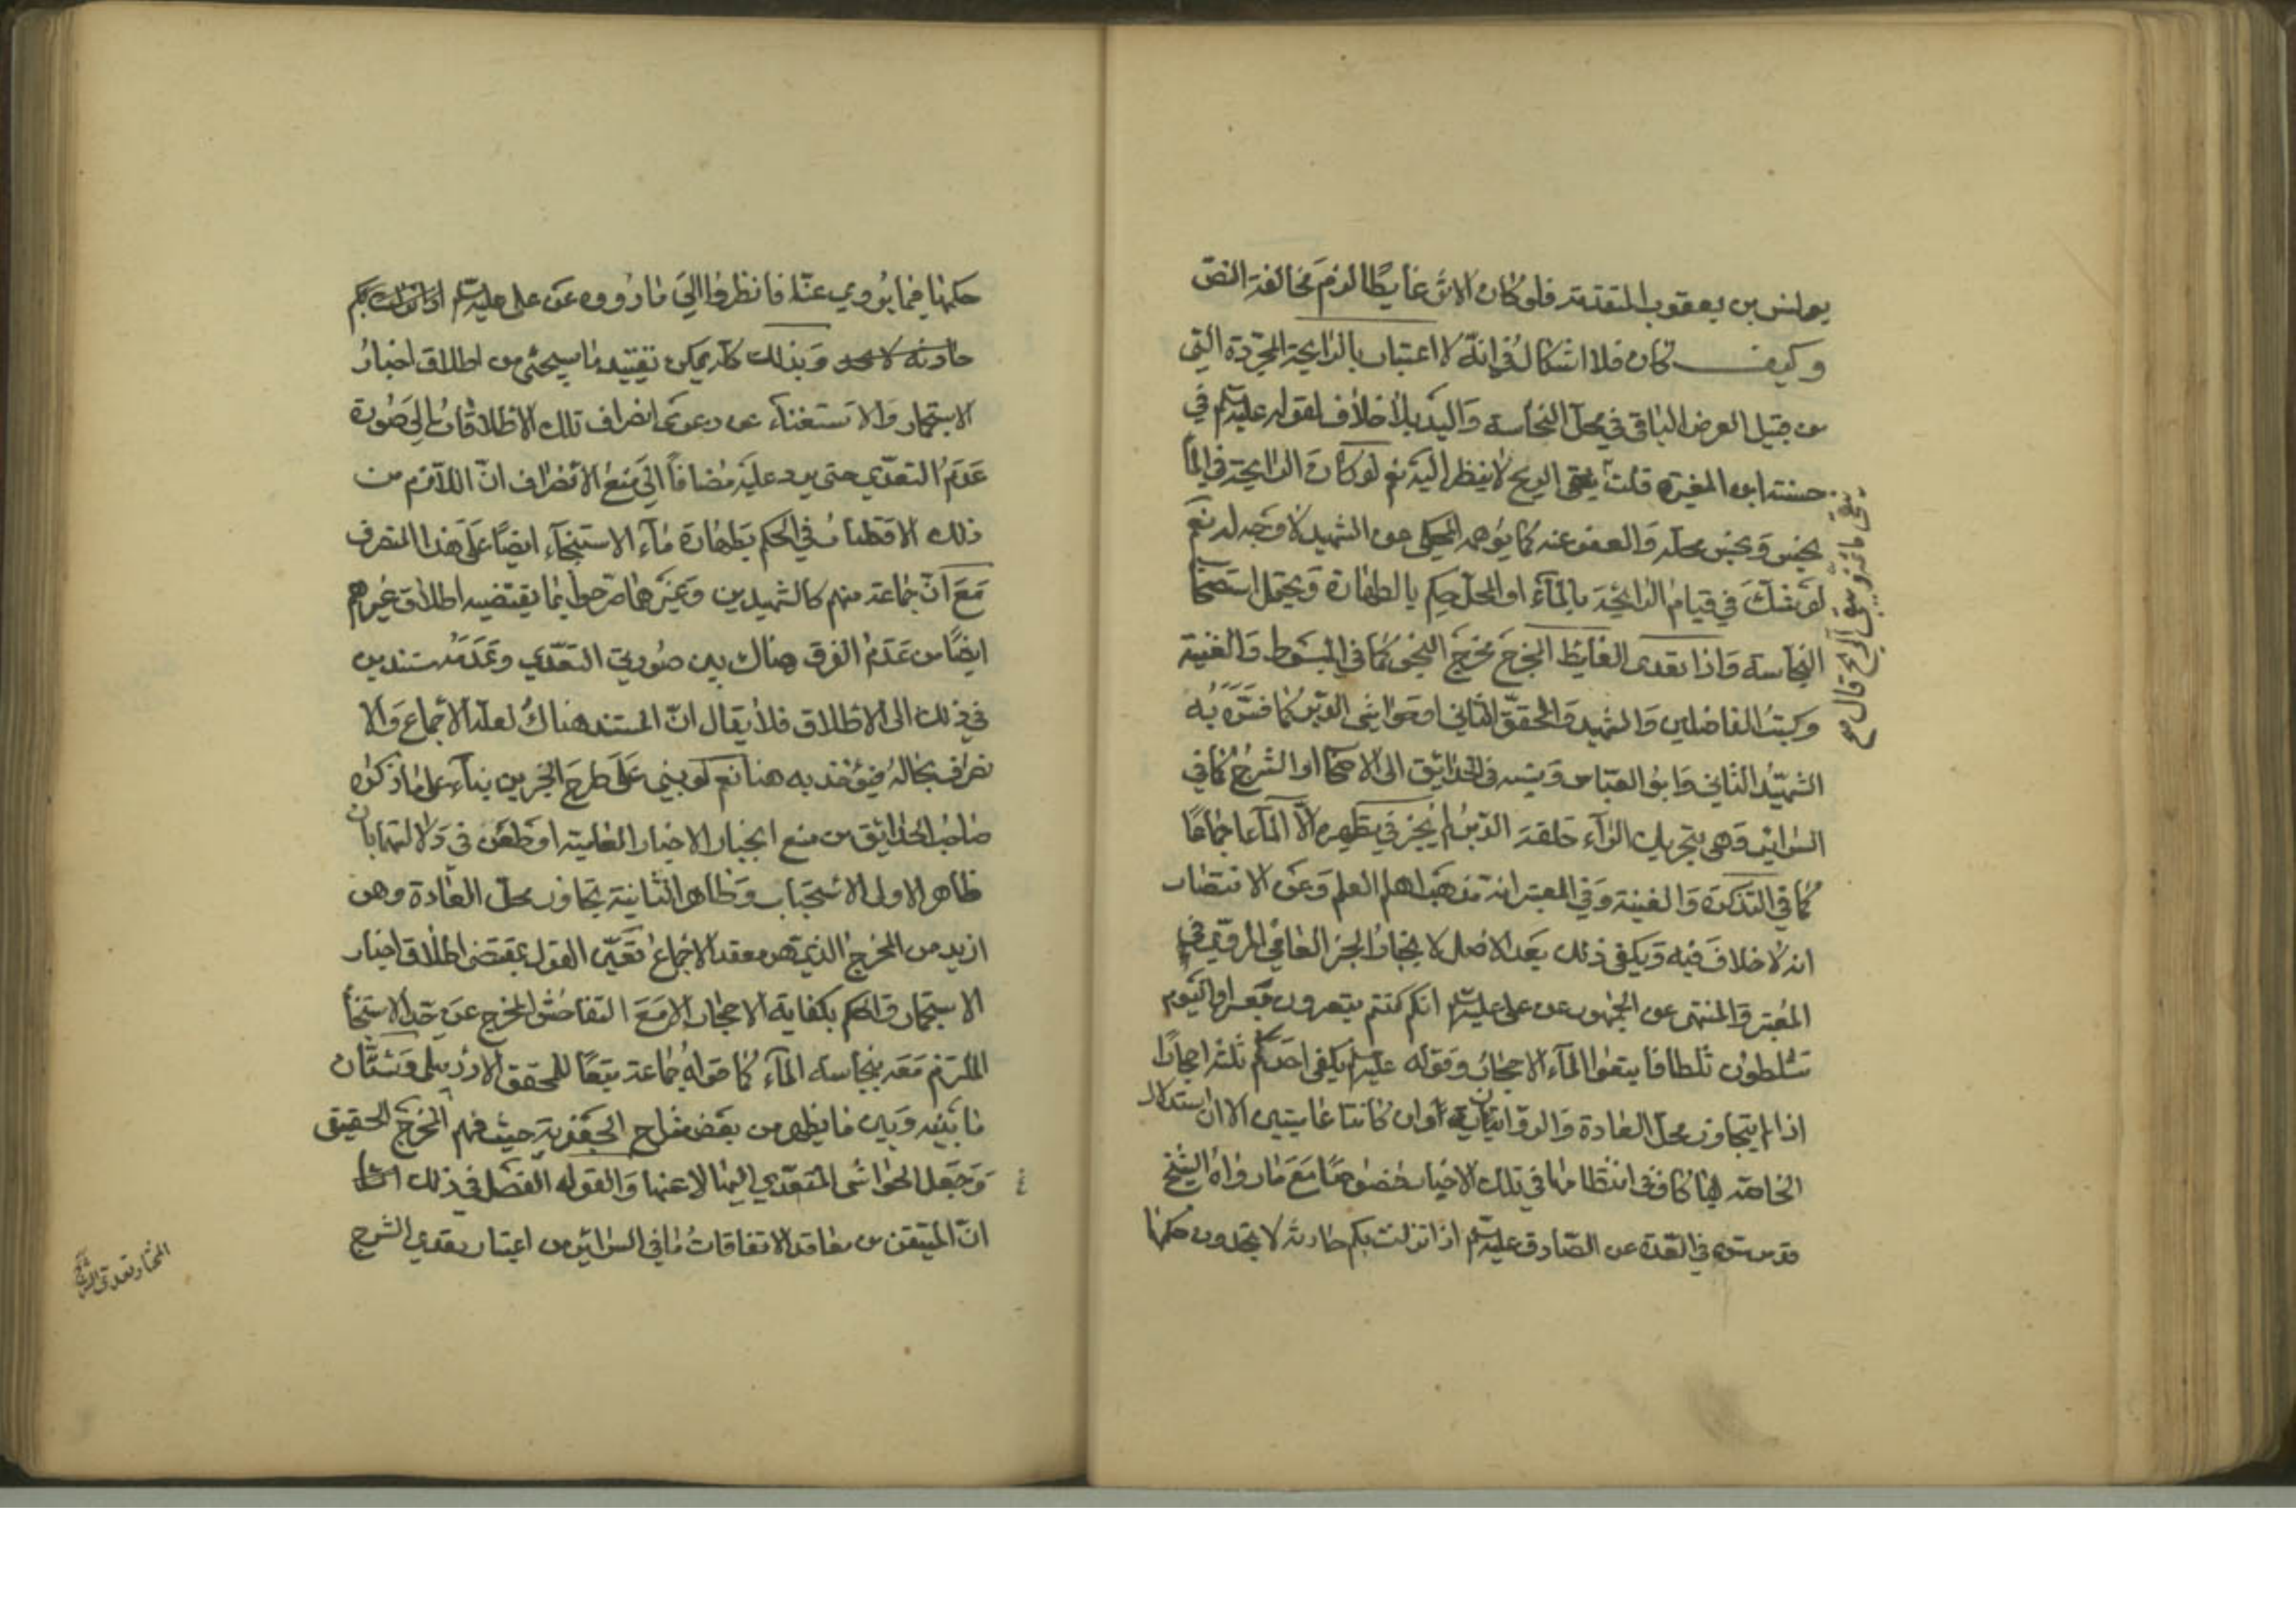 يونس بن يعقوب المتقدمة فلو كان الاثر غايطا لزم مخالفة النص
وكيف كان فلا اشكال في انه لا اعتبار بالرايحة المجردة التي
من قبيل العرض الباقي في محل النجاسة واليد بلا خلاف لقوله عليه السلم في
حسنة ابن المغيرة قلت يبقى الريح لا ينظر اليه نعم لو كان الرايحة في الماء
نجس ونجس محله والعفو عنه كما يوهم المحكي عن الشهيد لا وجه له نعم
لو شك في قيام الرايحة بالماء او المحل حكم بالطهارة ويحتمل استصحاب
النجاسة واذا تعدى الغايط المخرج مخرج النجو كما في المبسوط والغنية
وكتب الفاضلين والشهيد والمحقق الثاني او حواشي الدبر كما فسره به
الشهيد الثاني وابو العباس ونسبه في الحدائق الى الاصحاب او الشرج كما في
السرائر وهي بتحريك الراء حلقة الدبر لم يجز في تطهيره الا الماء اجماعا
كما في التذكرة والغنية وفي المعتبر انه مذهب اهل العلم وعن الانتصار
انه لا خلاف فيه ويكفي ذلك بعد الاصل لانجبار الخبر العامي المروي في
المعتبر والمنتهى عن الجمهور عن علي عليه السلم انكم كنتم تبعرون بعرا واليوم
تثلطون ثلطا فاتبعوا الماء الاحجار وقوله عليه السلم يكفي احدكم ثلثة احجار
اذا لم يتجاوز محل العادة والروايتان وان كانتا عاميتين الا ان استدلال
الخاصة بهما كاف في انتظامهما في تلك الاخبار خصوصا مع ما رواه الشيخ
قدس سره في العدة عن الصادق عليه السلم اذا نزلت بكم حادثة لا تجدون حكمها
يبقى ما ثمة ويبقى الريح قال صح
حكمها فيما يروى عنا فانظروا الى ما رووه عن علي عليه السلم اذا نزلت بكم
حادثة لا تجد وبذلك كله يمكن تقييد ما سيجئ من اطلاق اخبار
الاستجمار والاستغناء عن دعوى انصراف تلك الاطلاقات الى صورة
عدم التعدي حتى يرد عليه مضافا الى منع الانصراف ان اللازم من
ذلك الاقتصار في الحكم بطهارة ماء الاستنجاء ايضا على هذا المنصرف
مع ان جماعة منهم كالشهيدين وغيرهما صرحوا بما يقتضيه اطلاق غيرهم
ايضا من عدم الفرق هناك بين صورتي التعدي وعدمه مستندين
في ذلك الى الاطلاق فلا يقال ان المستند هناك لعله الاجماع والا
نصراف بحاله فيؤخذ به هنا نعم لو بني على طرح الخبرين بناء على ما ذكره
صاحب الحدائق من منع انجبار الاخبار العامية او طعن في دلالتهما بان
ظاهر الاولى الاستحباب وظاهر الثانية تجاوز محل العادة وهو
ازيد من المخرج الذي هو معقد الاجماع تعين القول بمقتضى اطلاق اخبار
الاستجمار والحكم بكفاية الاحجار الا مع التفاحش المخرج عن حد الاستنجاء
الملتزم معه بنجاسة الماء كما قواه جماعة تبعا للمحقق الاردبيلي وشتان
ما بينه وبين ما يظهر من بعض شراح الجعفرية حيث فهم المخرج الحقيقي
وجعل الحواشي المتعدي اليها لا عنها والقول الفصل في ذلك
ان المتيقن من معاقد الاتفاقات ما في السرائر من اعتبار تعدي الشرج